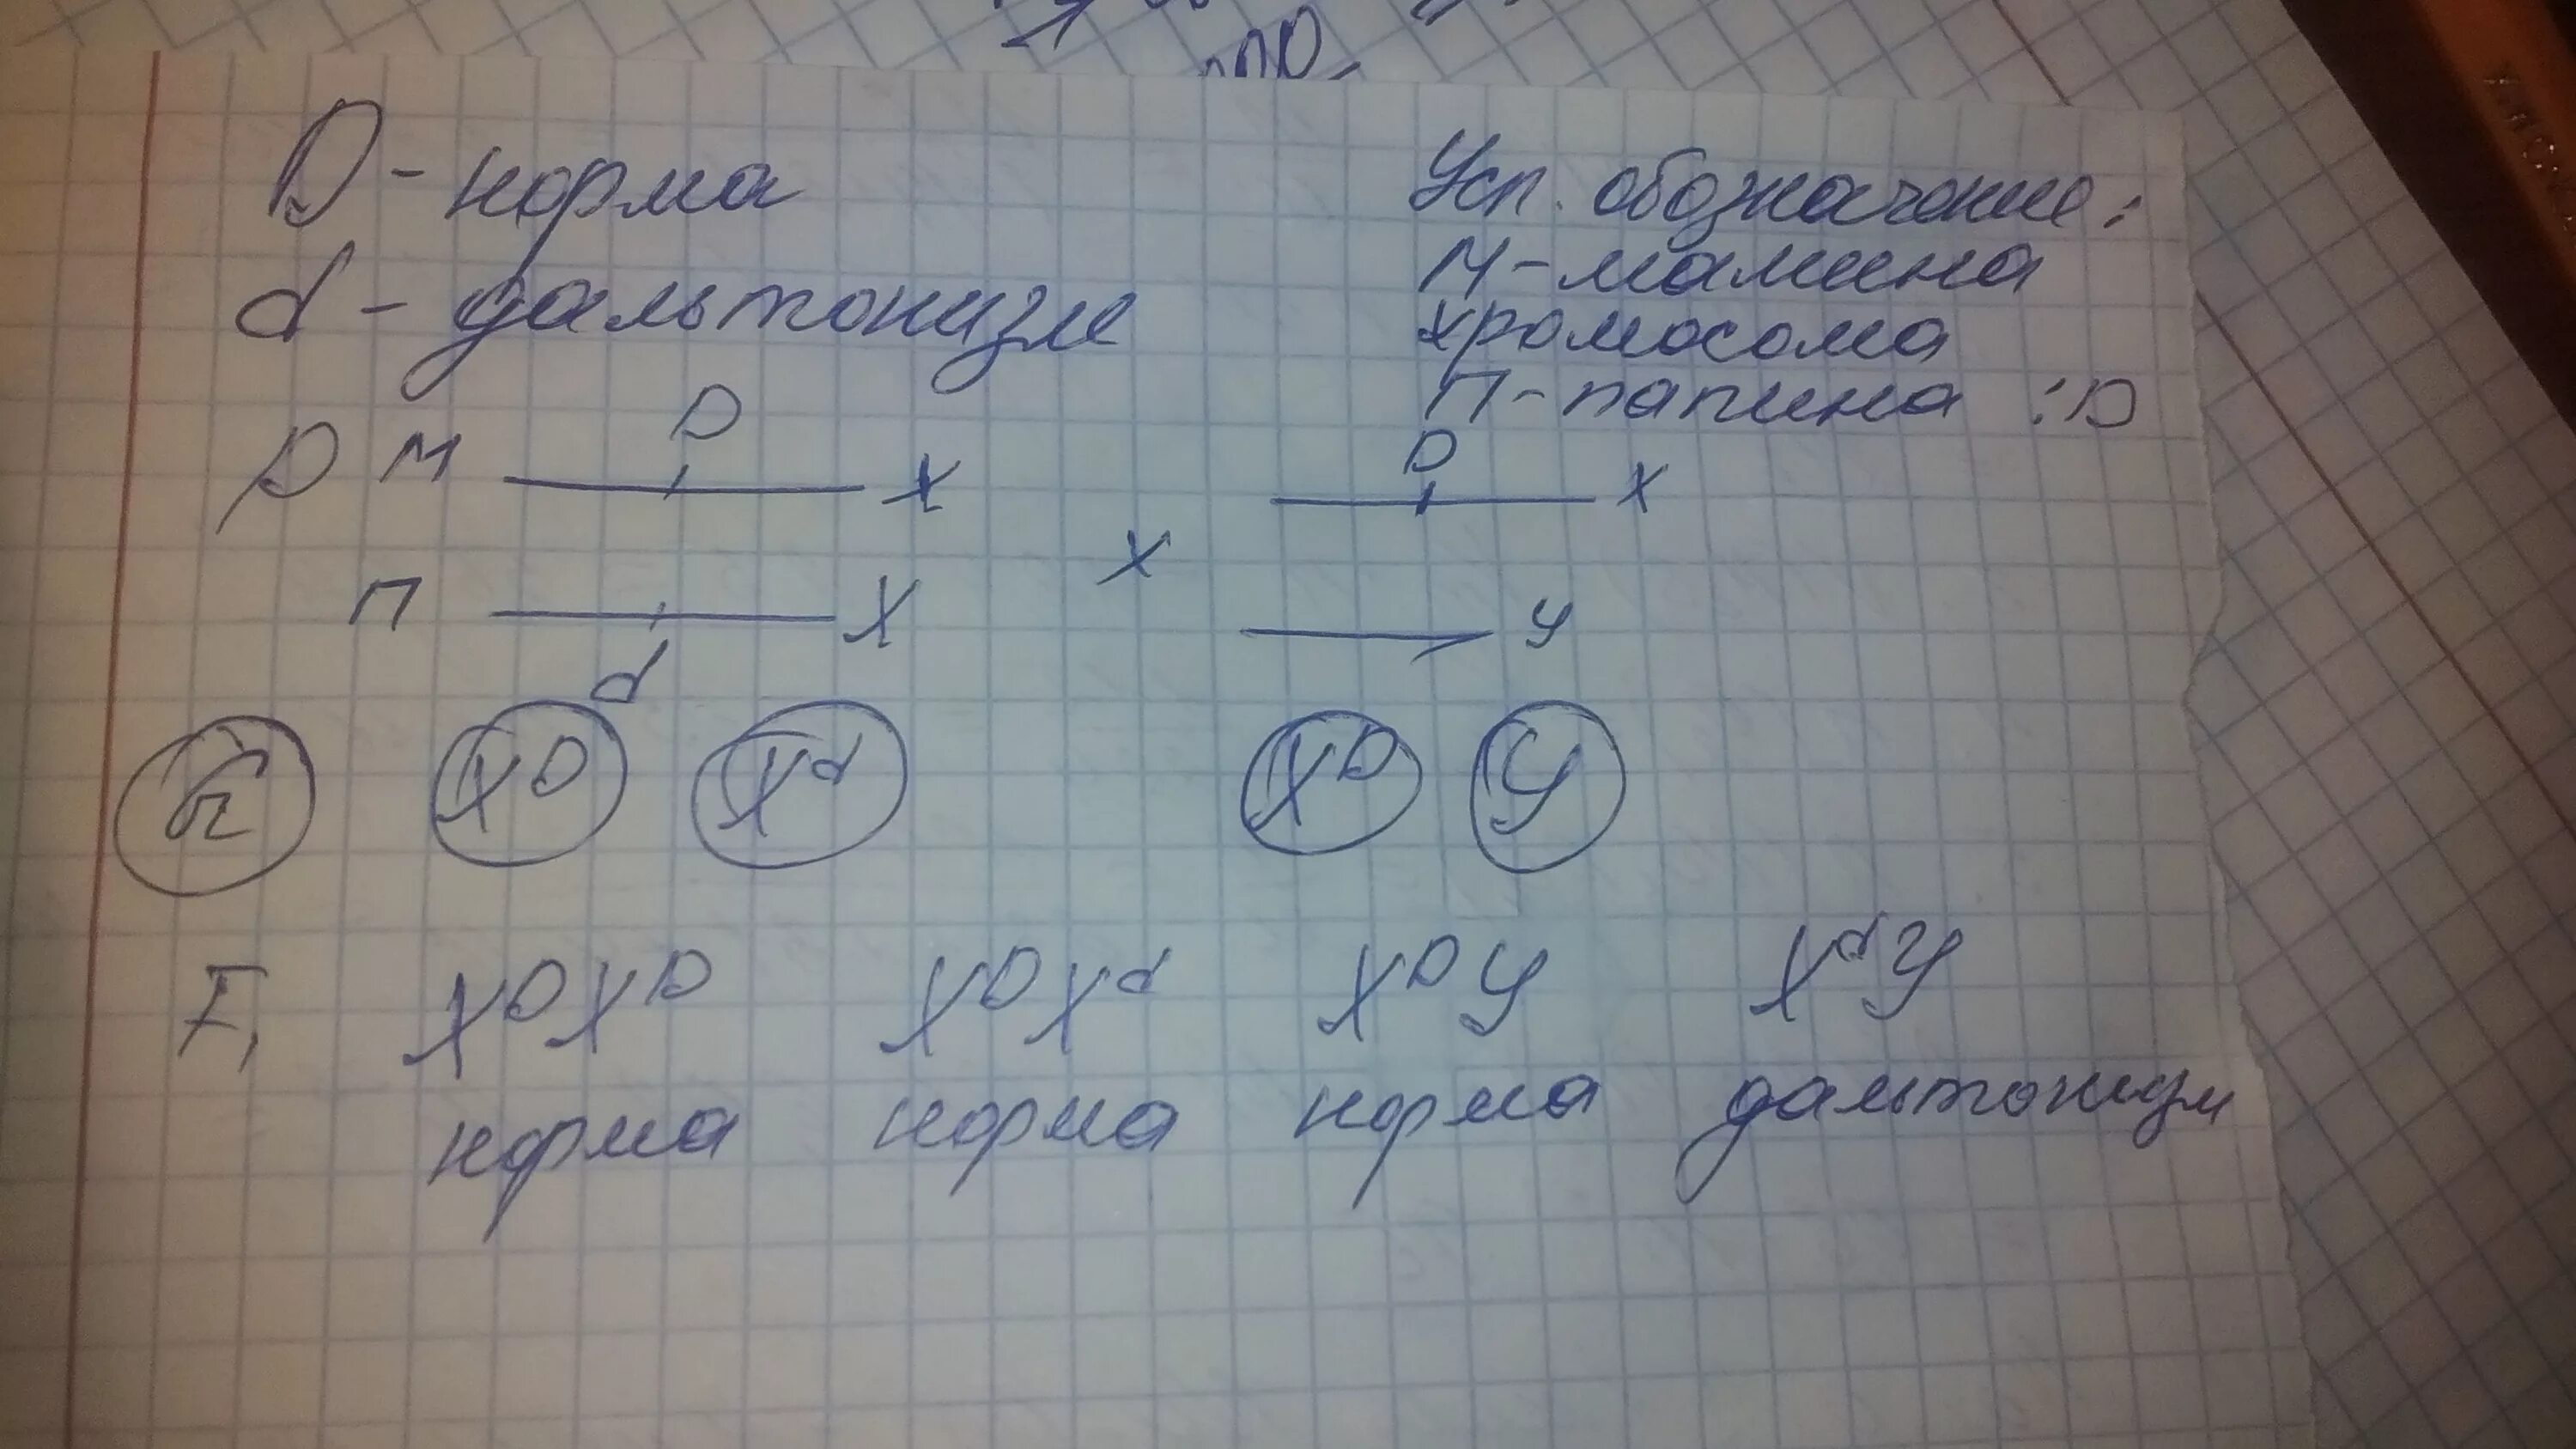 D - норма
d - дальтонизм
Усп. обозначение:
М - мамина
хромосома
П - папина :D
P М D X D X
X
П d X У
G XD Xd XD У
F1 XDXD XDXd XDУ XdУ
норма норма норма дальтонизм